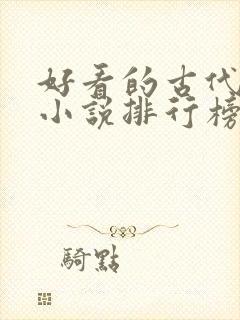 好看的古代
小說排行榜
騎點